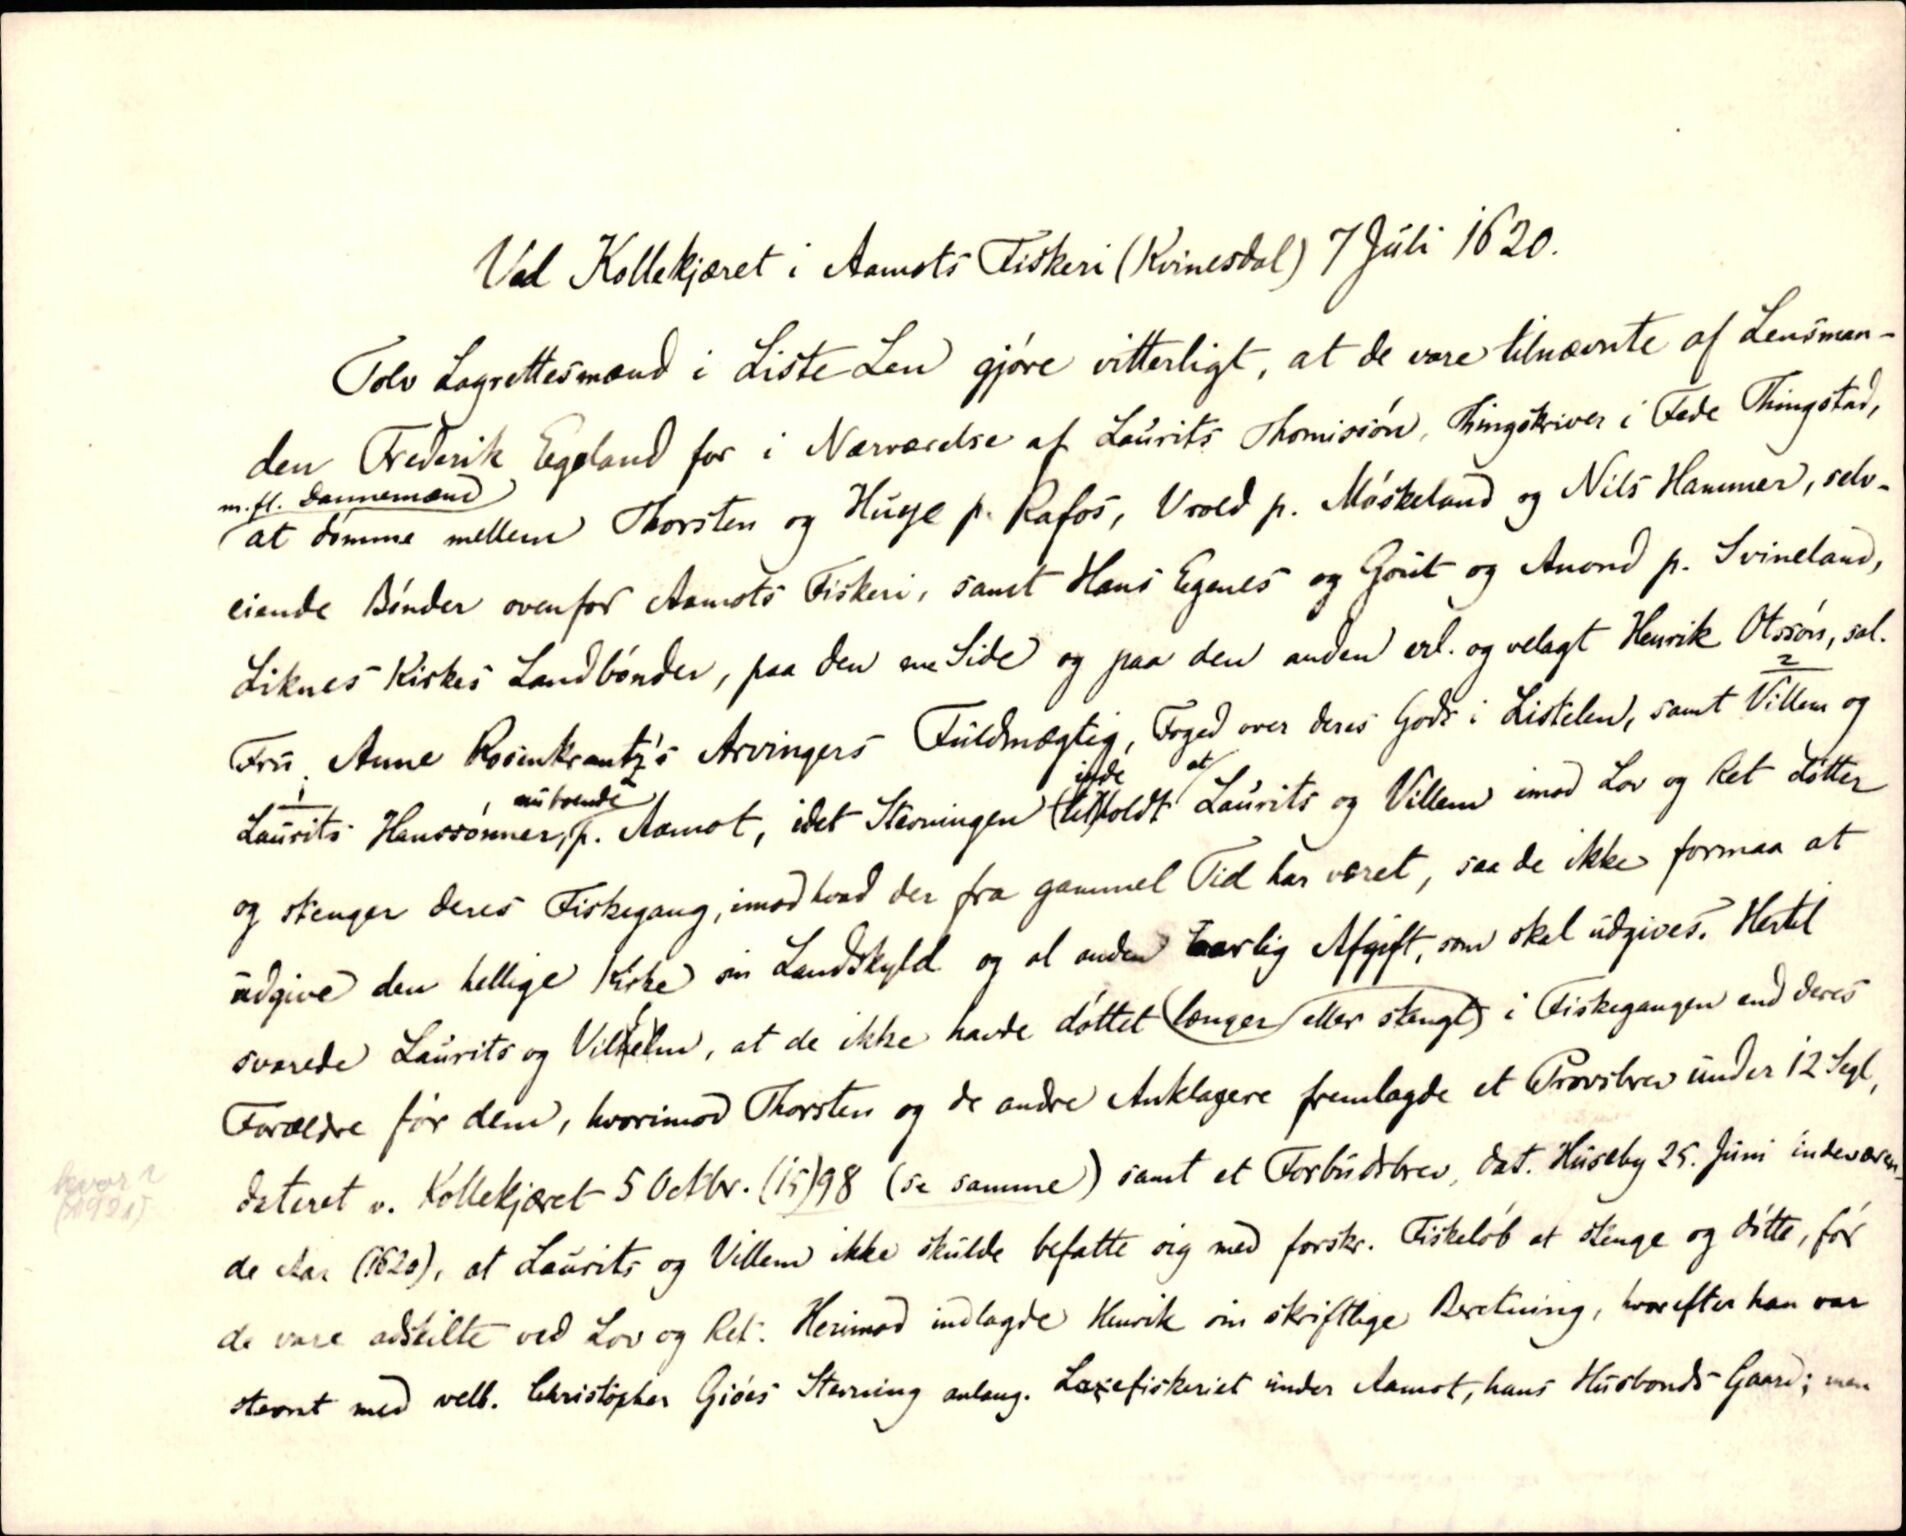 Ved Kollekjæret i Aamots Fiskeri (Kvinesdal) 7 Juli 1620.
Tolv Lagrettesmænd i Liste Len gjøre vitterligt, at de vare tilnævnte af Lensman-
den Frederik Egeland for i Nærværelse af Laurits Thomissøn, Thingskriver i Fede Thingstad,
m. fl. Dannemænd
at dømme mellem Thorsten og Huge p. Rafos, Vrold p. Møskeland og Nils Hammer, selv-
eiende Bønder ovenfor Aamots Fiskeri, samt Hans Egenes og Gout og Anond p. Svineland,
Liknes Kirkes Landbønder, paa den ene Side og paa den anden erl. og velagt Henrik Otssøn, sal.
Fru Anne Rosenkrantz's Arvingers Fuldmægtig, Foged over deres Gods i Listelen, samt Villem og
Laurits Hanssønner, nuboende p. Aamot, idet Stevningen (til) inde holdt at Laurits og Villem imod Lov og Ret døtter
og stenger deres Fiskegang, imod hvad der fra gammel Tid har været, saa de ikke formaa at
udgive den hellige Kirke sin Landskyld og al anden aarlig Afgift, som skal udgives. Hertil
svarede Laurits og Vilhelm, at de ikke havde døttet (længer eller stengt) i Fiskegangen end deres
Forældre før dem, hvorimod Thorsten og de andre Anklagere fremlagde et Prøvsbrev under 12 Segl,
dateret v. Kollekjæret 5 Octbr. (15)98 (se samme) samt et Forbudsbrev, dat. Huseby 25. Juni indeværen-
de Aar (1620), at Laurits og Villem ikke skulde befatte sig med forskr. Fiskeløb at stenge og døtte, før
de vare adskilte ved Lov og Ret. Herimod indlagde Henrik sin skriftlige Beretning, hvorefter han var
stevnt med velb. Christopher Giøes Stevning anlang. Laxefiskeriet under Aamot, hans Husbonds Gaard; men